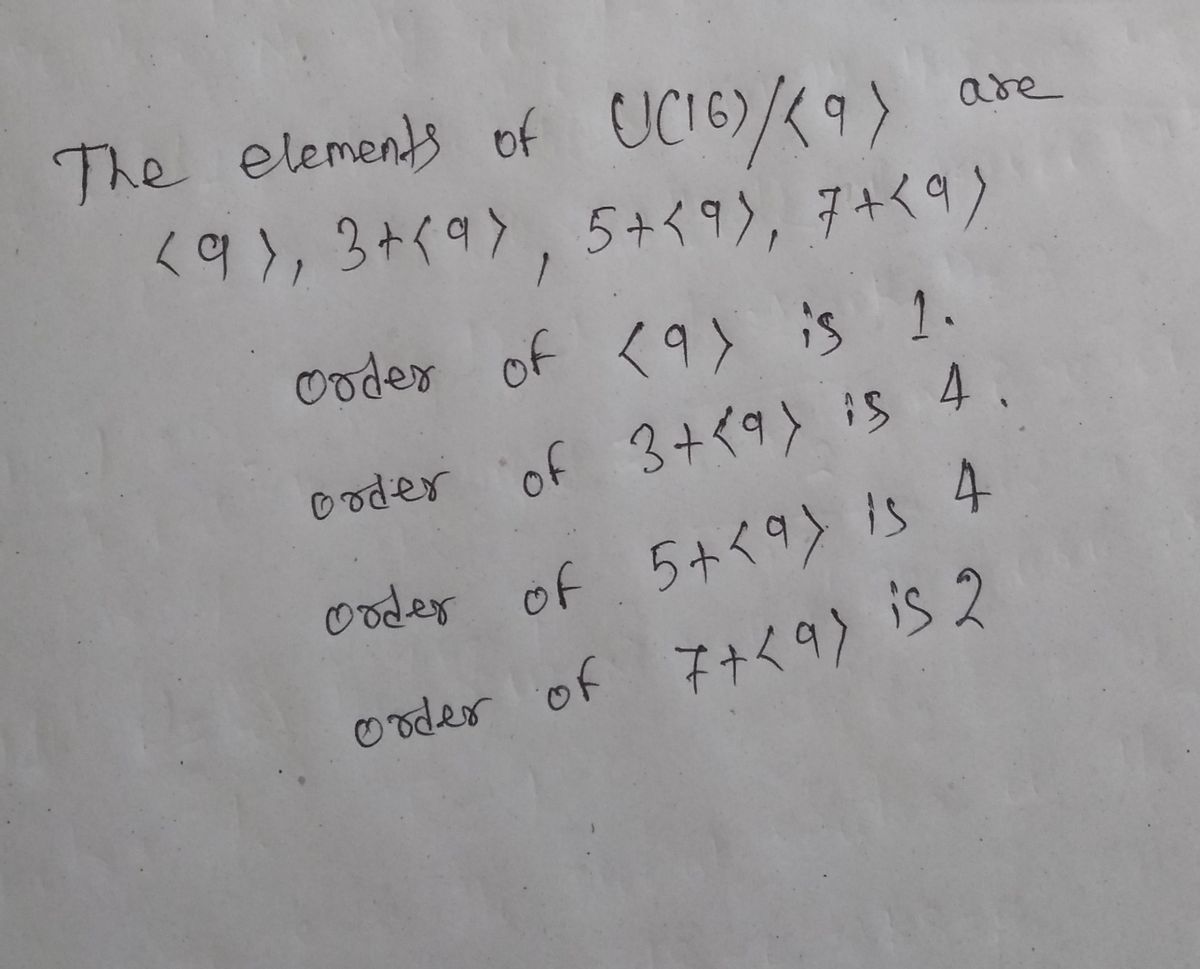 The elements of U(16)/<9> are
<9>, 3+<9>, 5+<9>, 7+<9>
order of <9> is 1.
order of 3+<9> is 4.
order of 5+<9> is 4
order of 7+<9> is 2